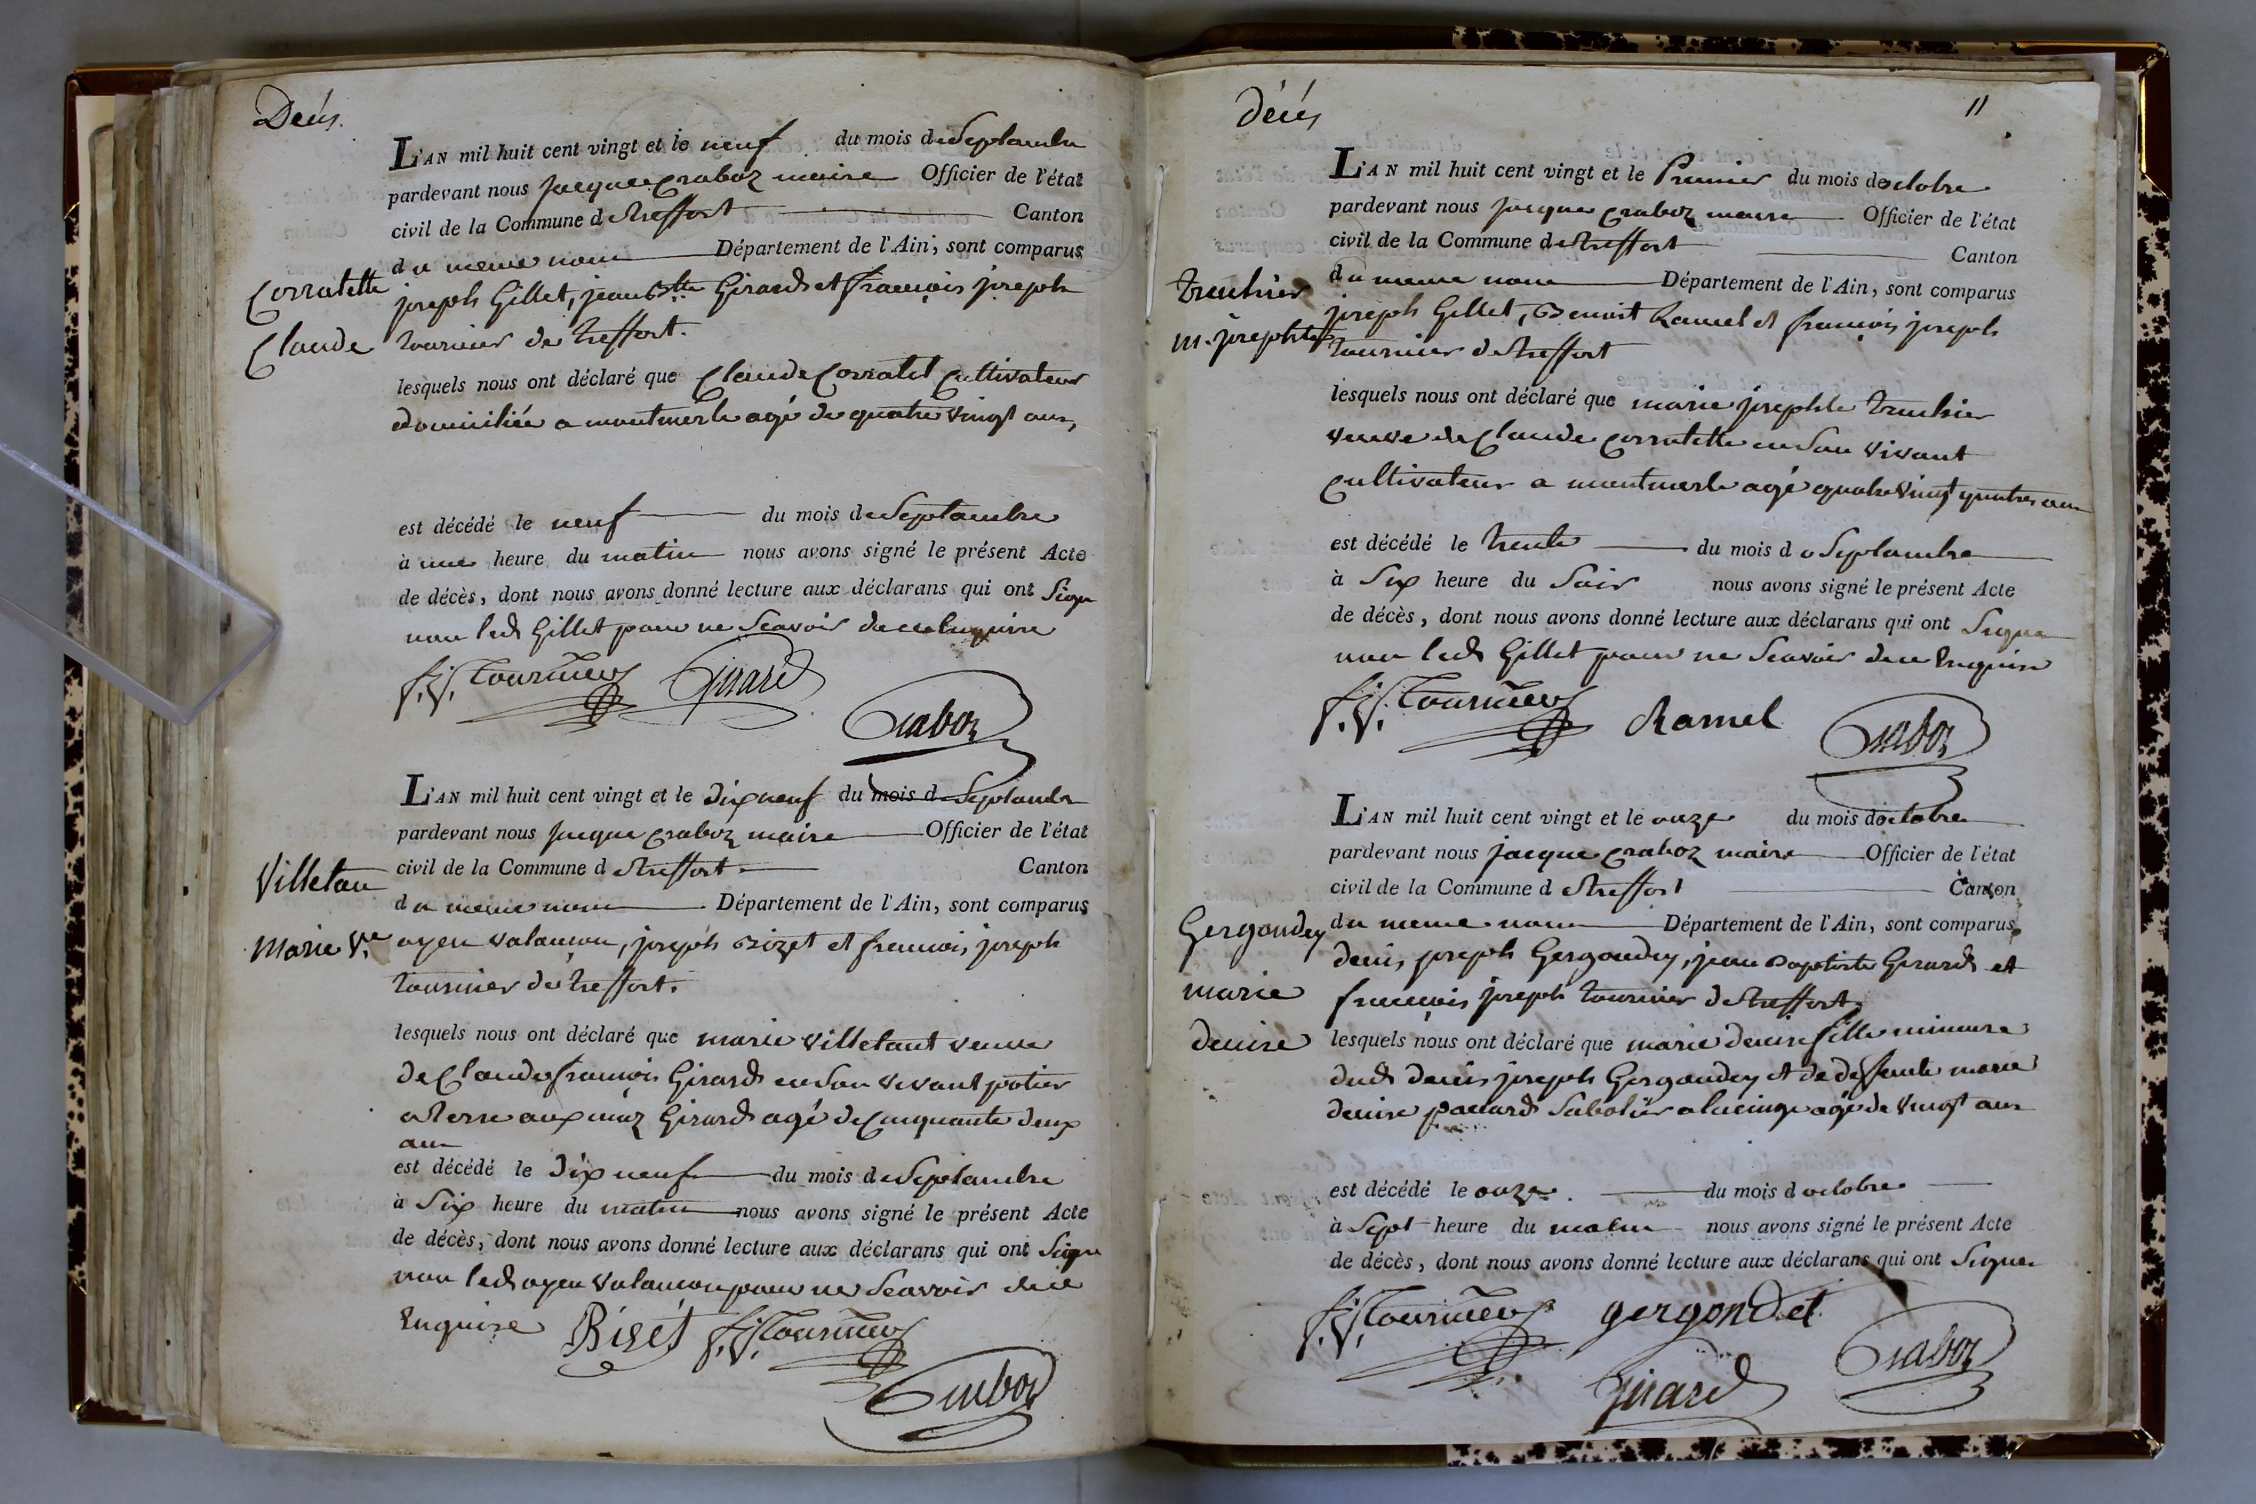 Décès.
L'AN mil huit cent vingt et le neuf du mois de Septambre
pardevant nous jacque craboz maire Officier de l'état
civil de la Commune d etreffort Canton
du meme nom Département de l'Ain, sont comparus
Corratette
joseph Gillet, jean Btte Girard et francois joseph
Claude
tournier de treffort.
lesquels nous ont déclaré que Claude Corratet Cultivateur
domiciliée a montmerle agé de quatre vingt ans,
est décédé le neuf du mois de Septambre
à une heure du matin nous avons signé le présent Acte
de décès, dont nous avons donné lecture aux déclarans qui ont Signe
non led Gillet pour ne Scavoir de ce enquire
f. j. Tournier Girard
Craboz
L'AN mil huit cent vingt et le dix neuf du mois d Septambre
pardevant nous jacque craboz maire Officier de l'état
civil de la Commune d etreffort Canton
Villetan
du meme nom Département de l'Ain, sont comparus
Marie Ve
ayen valancon, joseph Bizet et francois joseph
tournier de treffort.
lesquels nous ont déclaré que marie villetant veuve
de Claude francois Girard en Son vivant potier
a terre aux Girard agé de Cinquante deux
ans
est décédé le dix neuf du mois de Septambre
à Six heure du matin nous avons signé le présent Acte
de décès, dont nous avons donné lecture aux déclarans qui ont Signe
non led ayen valancon pour ne Scavoir de ce
Enquire Biset f. j. Tournier
Craboz
décés
11
L'AN mil huit cent vingt et le Premier du mois doctobre
pardevant nous jacque craboz maire Officier de l'état
civil de la Commune d etreffort Canton
du meme nom Département de l'Ain, sont comparus
truchier
joseph Gillet, Benoit Ramel et francois joseph
m. josephte
tournier d etreffort
lesquels nous ont déclaré que marie josephte truchier
veuve de Claude corratette en Son vivant
cultivateur a montmerle agé quatre vingt quatres ans
est décédé le trente du mois de Septambre
à Six heure du Soir nous avons signé le présent Acte
de décès, dont nous avons donné lecture aux déclarans qui ont Signe
non led Gillet pour ne Scavoir de ce Enquire
f. j. Tournier Ramel Craboz
L'AN mil huit cent vingt et le onze du mois doctobre
pardevant nous jacque craboz maire Officier de l'état
civil de la Commune d etreffort Canton
Gergondey
du meme nom Département de l'Ain, sont comparus
denis joseph Gergondey, jean Baptiste Girard et
marie
francois joseph tournier d etreffort.
denise
lesquels nous ont déclaré que marie denise fille mineure
dud denis joseph Gergondey et de deffunte marie
denise pacard Sabotier agé de vingt ans
est décédé le onze. du mois d octobre
à Sept heure du matin nous avons signé le présent Acte
de décès, dont nous avons donné lecture aux déclarans qui ont Signe
f. j. Tournier gergondet
Girard Craboz